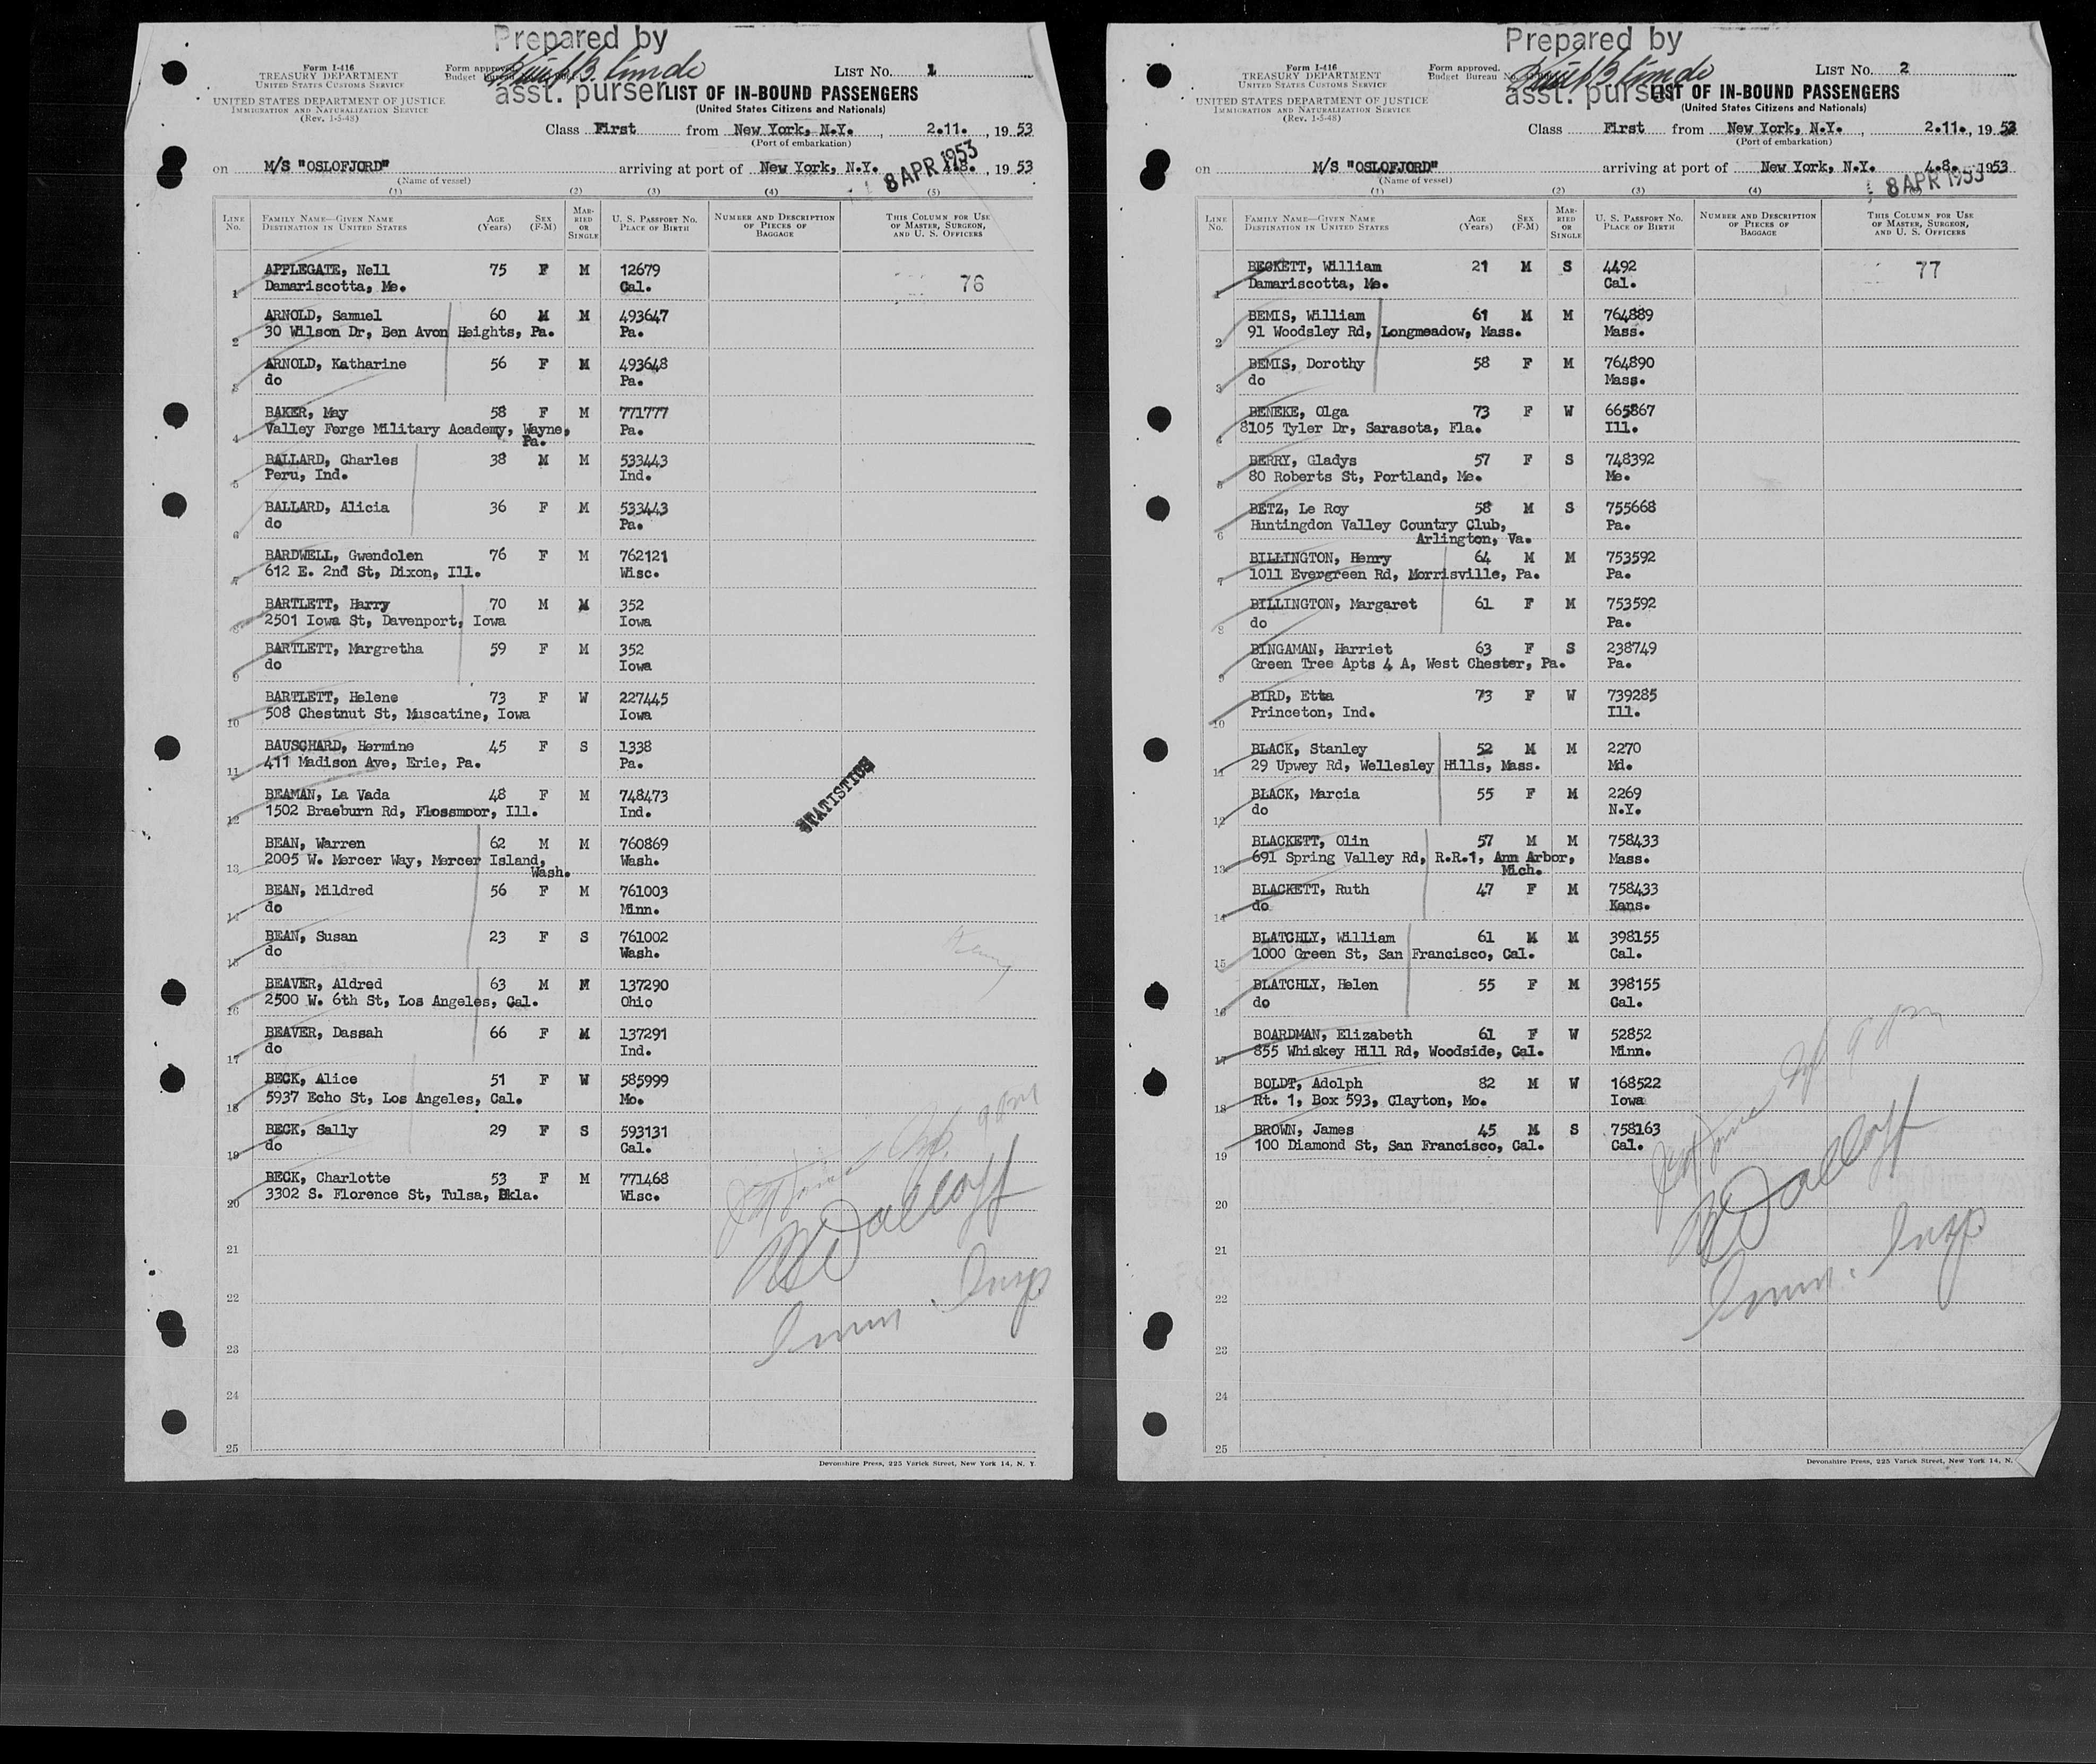 Prepared by
Form I-416
TREASURY DEPARTMENT
UNITED STATES CUSTOMS SERVICE
Form approved.
Budget Bureau
LIST No. 1
UNITED STATES DEPARTMENT OF JUSTICE
IMMIGRATION AND NATURALIZATION SERVICE
(Rev. 1-5-48)
asst. purser
LIST OF IN-BOUND PASSENGERS
(United States Citizens and Nationals)
Class First from New York, N.Y., 2.11., 1953
(Port of embarkation)
on M/S "OSLOFJORD" arriving at port of New York, N.Y. 4.8., 1953
(Name of vessel)
8 APR 1953
(1) (2) (3) (4) (5)
LINE No. FAMILY NAME—GIVEN NAME DESTINATION IN UNITED STATES AGE (Years) SEX (F-M) MARRIED OR SINGLE U. S. PASSPORT No. PLACE OF BIRTH NUMBER AND DESCRIPTION OF PIECES OF BAGGAGE THIS COLUMN FOR USE OF MASTER, SURGEON, AND U. S. OFFICERS
APPLEGATE, Nell 75 F M 12679 76
1 Damariscotta, Me. Cal.
ARNOLD, Samuel 60 M M 493647
2 30 Wilson Dr, Ben Avon Heights, Pa. Pa.
ARNOLD, Katharine 56 F M 493648
3 do Pa.
BAKER, May 58 F M 771777
4 Valley Forge Military Academy, Wayne, Pa. Pa.
BALLARD, Charles 38 M M 533443
5 Peru, Ind. Ind.
BALLARD, Alicia 36 F M 533443
6 do Pa.
BARDWELL, Gwendolen 76 F M 762121
7 612 E. 2nd St, Dixon, Ill. Wisc.
BARTLETT, Harry 70 M M 352
8 2501 Iowa St, Davenport, Iowa Iowa
BARTLETT, Margretha 59 F M 352
9 do Iowa
BARTLETT, Helene 73 F W 227445
10 508 Chestnut St, Muscatine, Iowa Iowa
BAUSCHARD, Hermine 45 F S 1338
11 411 Madison Ave, Erie, Pa. Pa.
BEAMAN, La Vada 48 F M 748473
12 1502 Braeburn Rd, Flossmoor, Ill. Ind.
STATISTICS
BEAN, Warren 62 M M 760869
13 2005 W. Mercer Way, Mercer Island, Wash. Wash.
BEAN, Mildred 56 F M 761003
14 do Minn.
BEAN, Susan 23 F S 761002
15 do Wash.
BEAVER, Aldred 63 M M 137290
16 2500 W. 6th St, Los Angeles, Cal. Ohio
BEAVER, Dassah 66 F M 137291
17 do Ind.
BECK, Alice 51 F W 585999
18 5937 Echo St, Los Angeles, Cal. Mo.
BECK, Sally 29 F S 593131
19 do Cal.
BECK, Charlotte 53 F M 771468
20 3302 S. Florence St, Tulsa, Okla. Wisc.
21
22
Imm. Insp
23
24
25
Devonshire Press, 225 Varick Street, New York 14, N. Y.
Prepared by
Form I-416
TREASURY DEPARTMENT
UNITED STATES CUSTOMS SERVICE
Form approved.
Budget Bureau No.
LIST No. 2
UNITED STATES DEPARTMENT OF JUSTICE
IMMIGRATION AND NATURALIZATION SERVICE
(Rev. 1-5-48)
asst. purser
LIST OF IN-BOUND PASSENGERS
(United States Citizens and Nationals)
Class First from New York, N.Y., 2.11., 1953
(Port of embarkation)
on M/S "OSLOFJORD" arriving at port of New York, N.Y. 4.8. 1953
(Name of vessel)
8 APR 1953
(1) (2) (3) (4)
LINE No. FAMILY NAME—GIVEN NAME DESTINATION IN UNITED STATES AGE (Years) SEX (F-M) MARRIED OR SINGLE U. S. PASSPORT No. PLACE OF BIRTH NUMBER AND DESCRIPTION OF PIECES OF BAGGAGE THIS COLUMN FOR USE OF MASTER, SURGEON, AND U. S. OFFICERS
BECKETT, William 21 M S 4492 77
1 Damariscotta, Me. Cal.
BEMIS, William 61 M M 764889
2 91 Woodsley Rd, Longmeadow, Mass. Mass.
BEMIS, Dorothy 58 F M 764890
3 do Mass.
BENEKE, Olga 73 F W 665867
4 8105 Tyler Dr, Sarasota, Fla. Ill.
BERRY, Gladys 57 F S 748392
5 80 Roberts St, Portland, Me. Me.
BETZ, Le Roy 58 M S 755668
6 Huntingdon Valley Country Club, Arlington, Va. Pa.
BILLINGTON, Henry 64 M M 753592
7 1011 Evergreen Rd, Morrisville, Pa. Pa.
BILLINGTON, Margaret 61 F M 753592
8 do Pa.
BINGAMAN, Harriet 63 F S 238749
9 Green Tree Apts 4 A, West Chester, Pa. Pa.
BIRD, Etta 73 F W 739285
10 Princeton, Ind. Ill.
BLACK, Stanley 52 M M 2270
11 29 Upwey Rd, Wellesley Hills, Mass. Md.
BLACK, Marcia 55 F M 2269
12 do N.Y.
BLACKETT, Olin 57 M M 758433
13 691 Spring Valley Rd, R.R.1, Ann Arbor, Mich. Mass.
BLACKETT, Ruth 47 F M 758433
14 do Kans.
BLATCHLY, William 61 M M 398155
15 1000 Green St, San Francisco, Cal. Cal.
BLATCHLY, Helen 55 F M 398155
16 do Cal.
BOARDMAN, Elizabeth 61 F W 52852
17 855 Whiskey Hill Rd, Woodside, Cal. Minn.
BOLDT, Adolph 82 M W 168522
18 Rt. 1, Box 593, Clayton, Mo. Iowa
BROWN, James 45 M S 758163
19 100 Diamond St, San Francisco, Cal. Cal.
20
21
22
Imm. Insp
23
24
25
Devonshire Press, 225 Varick Street, New York 14, N.